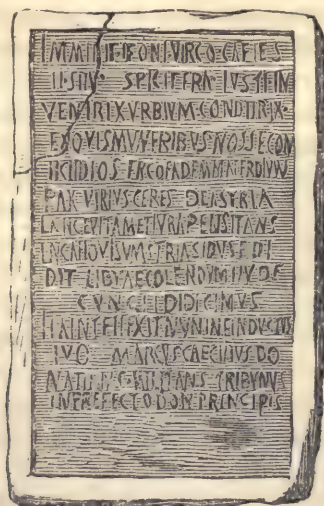 VIRGO
SPICIFERA IVSTI IN
VENTRIX VRBIVM CONDITRIX
EX QVIS MVNERIBVS NOSSE CON
DEOS ERGO EADEM MATER DIVVM
PAX VIRTVS CERES DEA SYRIA
LANCE VITAM ET IVRA PENSITANS
VISVM SYRIA SIDVS EDI
DIT LIBYAE COLENDVM INDE
CVNCTI DIDICIMVS
NVMINE INDVCTVS
TVO MARCVS CAECILIVS DO
MILITANS TRIBVNVS
IN PREFECTO DONO PRINCIPIS